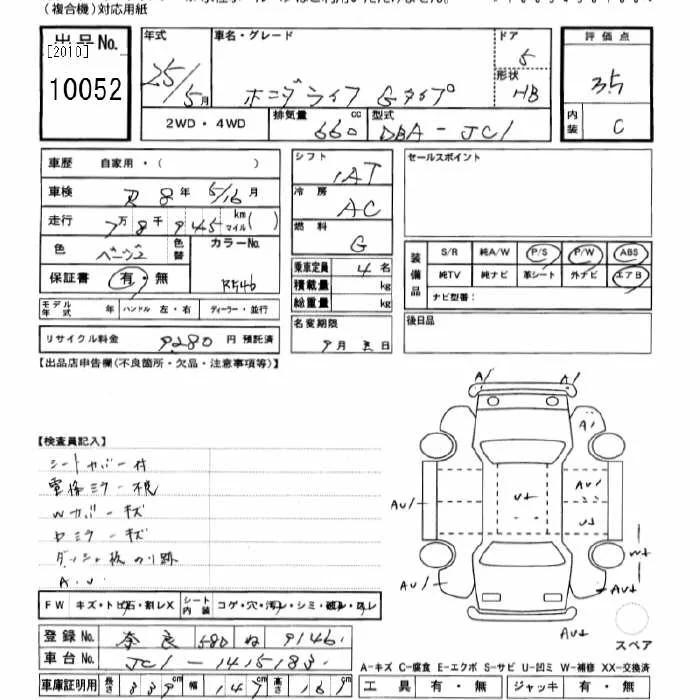 (複合機)対応用紙
出品No. [2010] 10052
年式 25/5月
車名・グレード ホンダライフ Gタイプ
ドア 5
形状 HB
評価点 3.5
内装 C
2WD・4WD
排気量 660 cc
型式 DBA-JC1
車歴 自家用・( )
車検 R 8 年 5/16 月
走行 7万 8千 945 km マイル( )
色 ベージュ 色替 カラーNo. R546
保証書 有・無
モデル年式 年 ハンドル 左・右 ディーラー・並行
リサイクル料金 9280 円 預託済
シフト IAT
冷房 AC
燃料 G
乗車定員 4 名
積載量 kg
総重量 kg
名変期限 9月 日
セールスポイント
装備品 S/R 純A/W P/S P/W ABS
純TV 純ナビ 革シート 外ナビ エアB
ナビ型番:
後日品
【出品店申告欄(不良箇所・欠品・注意事項等)】
【検査員記入】
シートカバー付
電格ミラー不良
Wカバーキズ
Rミラーキズ
ダッシュ板のり跡
A.U
A/ A/
A/
AU/ AU/
U+
U+
W+
AU/ AU+
AU+
スペア
FW キズ・トビ石・割レX シート内装 コゲ・穴・汚レ・シミ・破レ・スレ
登録No. 奈良 580 ね 9146
車台No. JC1-1415183
A-キズ C-腐食 E-エクボ S-サビ U-凹ミ W-補修 XX-交換済
車庫証明用 長さ 339 cm 幅 147 cm 高さ 161 cm
工具 有・無 ジャッキ 有・無